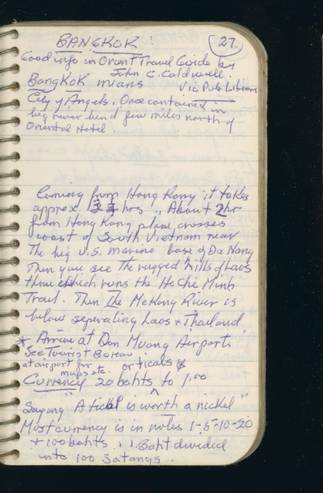 BANGKOK
27.
Good info in Orient Travel Guide by
John C. Caldwell.
Bangkok means Vic Pub Library
City of Angels, Once contained in
big river bend few miles north of
Oriental Hotel
Coming from Hong Kong it takes
approx hrs. About 2 hr
from Hong Kong plane crosses
coast of South Vietnam near
the big U.S. marine base of Da Nang
Then you see the rugged hills of Laos
thru which runs the Ho Chi Minh
Trail. Then the Mekong River is
below seperating Laos & Thailand
* Arrive at Don Muang Airport.
See Tourist Bureau
at airport for maps etc. or ticals
Currency 20 bahts to 1.00
Saying "A tical is worth a nickel"
Most currency is in notes 1-5-10-20
+ 100 bahts, 1 Baht divided
into 100 Satangs.